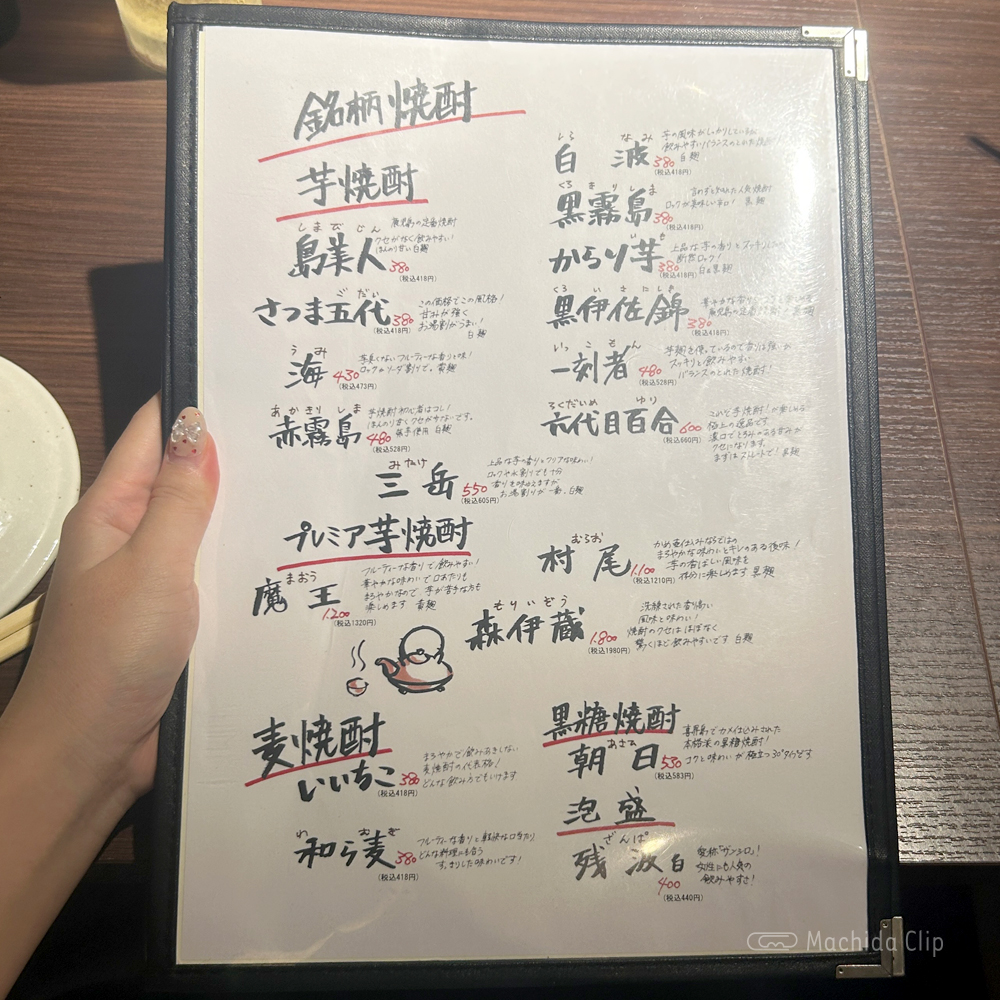 銘柄焼酎
芋焼酎
しまびじん
島美人 380
(税込418円)
鹿児島の定番焼酎
クセがなく飲みやすい!
ほんのり甘い 白麹
ごだい
さつま五代 380
(税込418円)
この価格でこの風格!
甘みが強く
お湯割がうまい!
白麹
うみ
海 430
(税込473円)
芋臭くないフルーティーな香りと味!
ロックかソーダ割りで。 黄麹
あかきりしま
赤霧島 480
(税込528円)
芋焼酎初心者はコレ!
ほんのり甘くクセが少ないです。
紫芋使用 白麹
しらなみ
白波 380
(税込418円)
芋の風味がしっかりしている
飲みやすいバランスのとれた
白麹
くろきりしま
黒霧島 380
(税込418円)
言わずと知れた人気焼酎
ロックが美味しい辛口! 黒麹
いも
からり芋 380
(税込418円)
上品な芋の香りとスッキリした
断然ロック!
白&黒麹
くろいさにしき
黒伊佐錦 380
(税込418円)
華やかな香り
鹿児島の定番 黒麹
いっこもん
一刻者 480
(税込528円)
芋麹を使っているので香りは強いが
スッキリと飲みやすい
バランスのとれた焼酎!
ろくだいめ ゆり
六代目百合 600
(税込660円)
これぞ芋焼酎!が楽しめる
極上の逸品です
濃口でとろみのある甘みが
クセになります。
まずはストレートで! 黒麹
みたけ
三岳 550
(税込605円)
上品な芋の香りとクリアな味わい!
ロックや水割りでも十分
香りを味わえますが
お湯割りが一番。白麹
プレミア芋焼酎
まおう
魔王 1,200
(税込1320円)
フルーティーな香りで飲みやすい!
華やかな味わいで口あたりも
まろやかなので 芋が苦手な方も
楽しめます 黄麹
むらお
村尾 1,100
(税込1210円)
かめ壺仕込みならではの
まろやかな味わいとキレのある後味!
芋の香ばしい風味を
存分に楽しめます 黒麹
もりいぞう
森伊蔵 1,800
(税込1980円)
洗練された香り高い
風味と味わい!
焼酎のクセはほぼなく
驚くほど飲みやすいです 白麹
麦焼酎
いいちこ 380
(税込418円)
まろやかで飲みあきしない
麦焼酎の代表格!
どんな飲み方でもいけます
わ むぎ
和ら麦 380
(税込418円)
フルーティな香りと軽快な口あたり
どんな料理にも合う
すっきりした味わいです!
黒糖焼酎
あさひ
朝日 530
(税込583円)
喜界島でカメ仕込みされた
本格派の黒糖焼酎!
コクと味わいが極立つ30°タイプです
泡盛
ざんぱ
残波 白
400
(税込440円)
愛称「ザンシロ」!
女性にも人気の
飲みやすさ!
Machida Clip